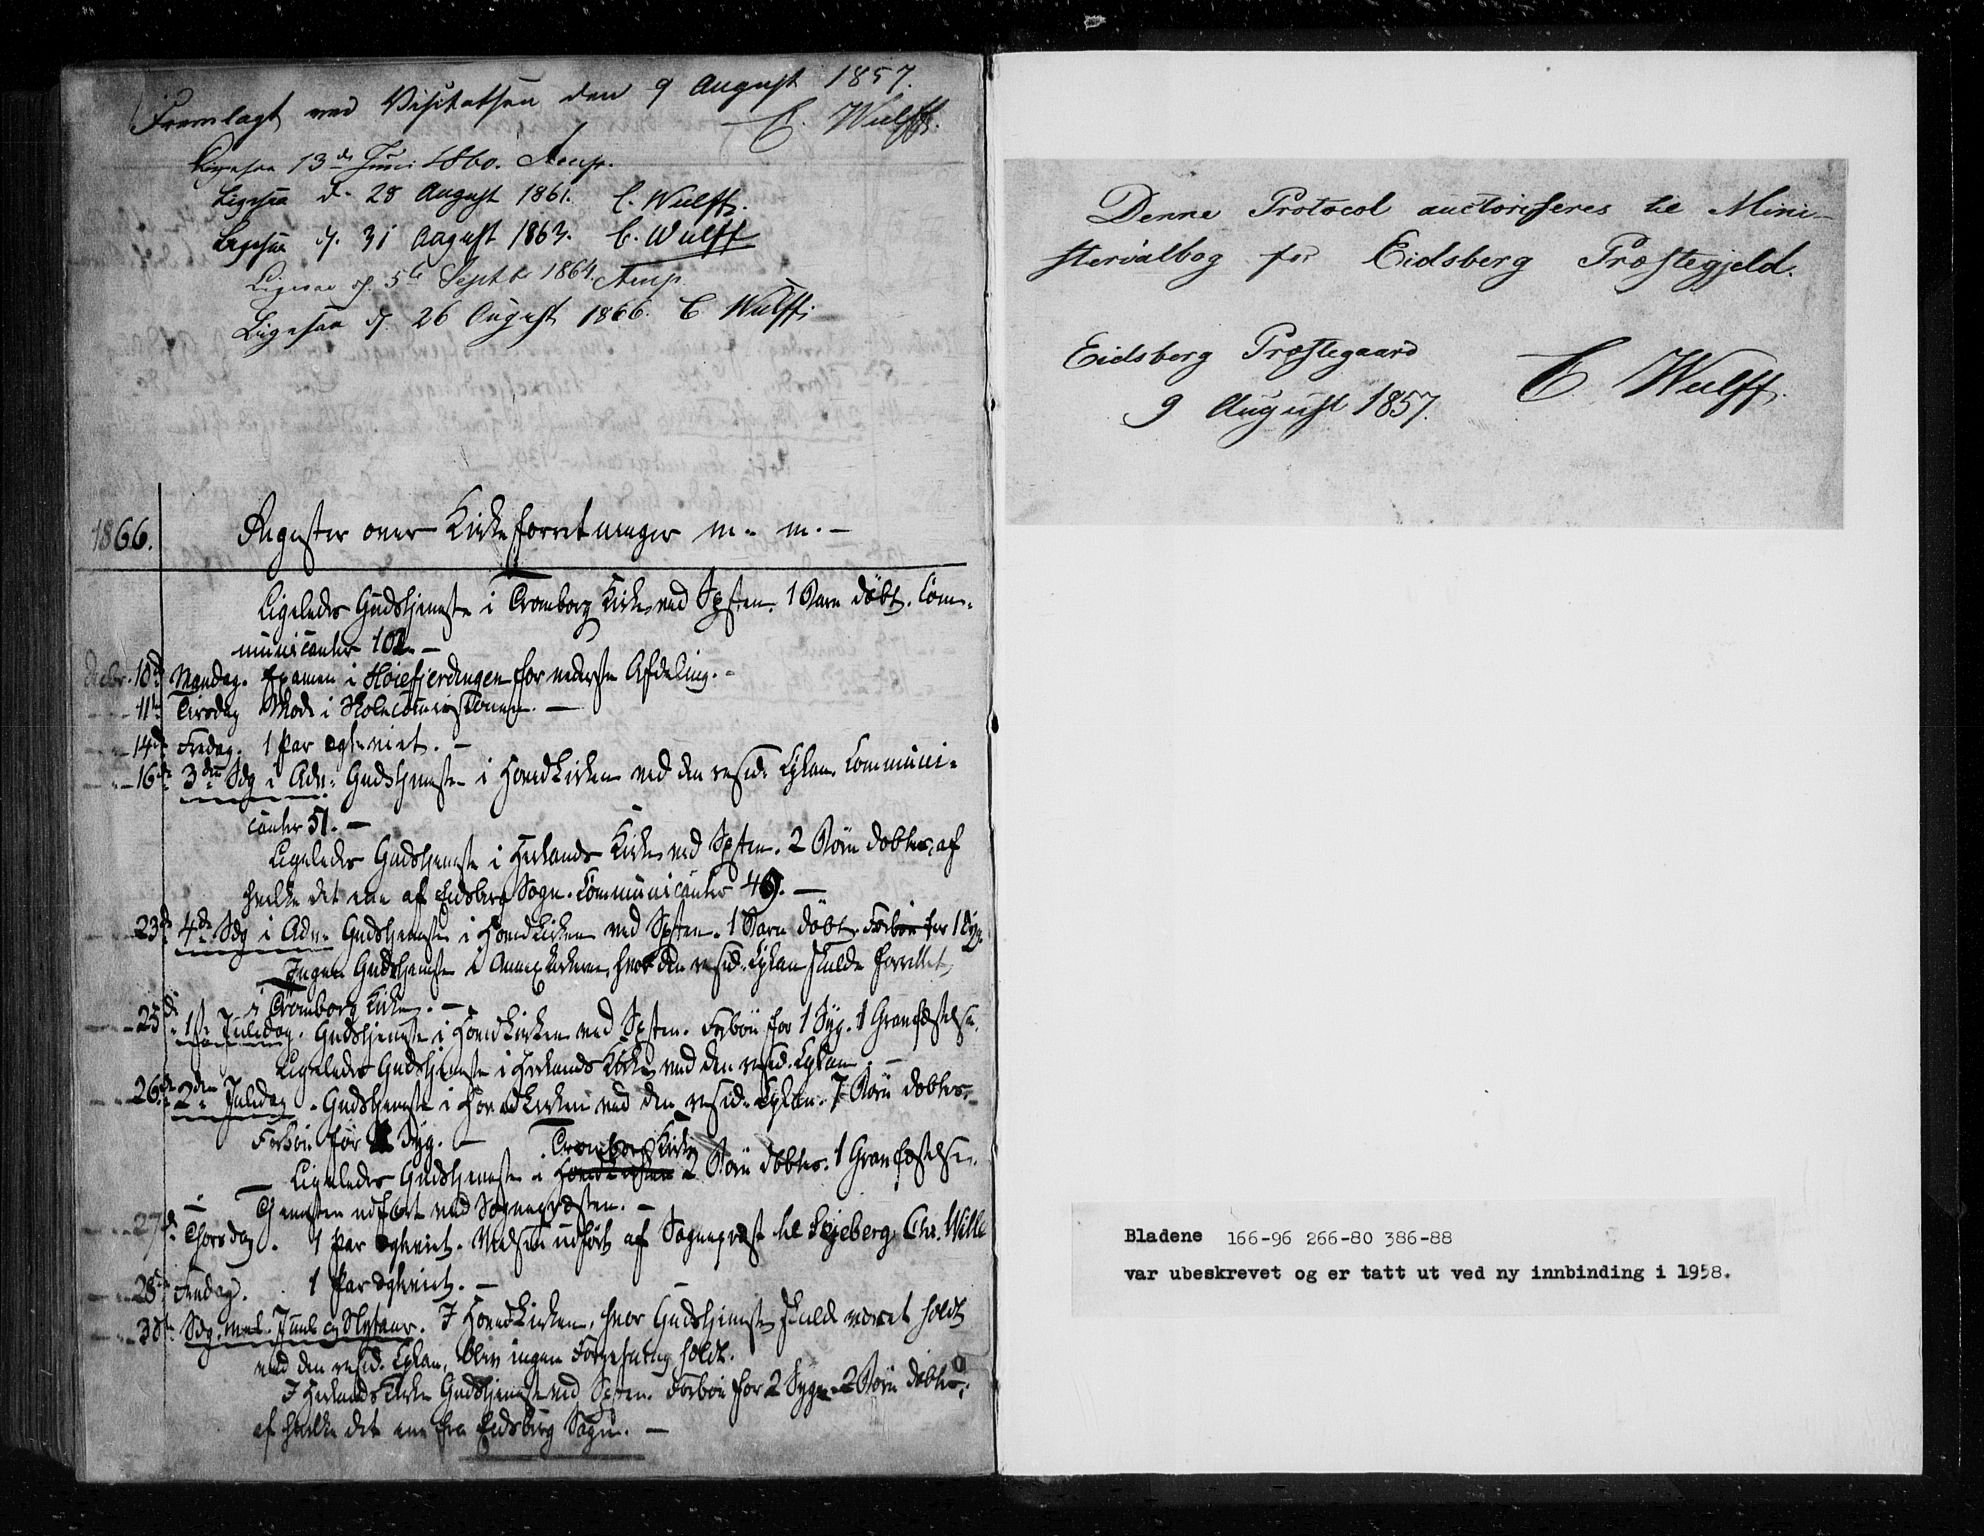 Fremlagt ved Visitatsen den 9 August 1857.
C. Wulff.
Ligesaa 13de Juni 1860. Arup.
Ligesaa d. 28 August 1861. C. Wulff.
Ligesaa d. 31 August 1863. C. Wulff
Ligesaa d. 5te Septbr 1864. Arup.
Ligesaa d. 26 August 1866. C Wulff.
1866. Register over Kirkeforretninger m. m. –
Ligeledes Gudstjeneste i Tromborg Kirke ved Spsten. 1 Barn döbt. Com-
municanter 102. –
Decbr. 10de Mandag. Examen i Höiefjerdingen for nederste Afdeling. –
11te Tirsdag Möde i Skolecommissionen. –
14de Fredag. 1 Par egteviet. –
16de 3die Sdg i Adv. Gudstjeneste i Hovedkirken ved den resid. Cplan. Communi-
canter 51. –
Ligeledes Gudstjeneste i Herlands Kirke ved Spsten. 2 Börn döbtes, af
hvilke det ene af Eidsberg Sogn. Communicanter 49. –
23de 4de Sdg i Adv. Gudstjeneste i Hovedkirken ved Spsten. 1 Barn döbt. Forbön for 1 Syg.
Ingen Gudstjeneste i Annexkirkerne, hvor den resid. Cplan skulde forrettet,
i Tromborg Kirke. –
25de 1ste Juledag. Gudstjeneste i Hovedkirken ved Spsten. Forbön for 1 Syg. 1 Gravfæstelse.
Ligeledes Gudstjeneste i Herlands Kirke ved den resid. Cplan. –
26de 2den Juledag. Gudstjeneste i Hovedkirken ved den resid. Cplan. 7 Börn döbtes.
Forbön for 1 Syg. –
Tromborg Kirke
– Ligeledes Gudstjeneste i Hovedkirken 2 Börn döbtes. 1 Gravfæstelse.
Tjenesten udfört ved Sognepræsten. –
27de Thorsdag. 1 Par egteviet. Vielsen udfört af Sognepræst til Skjeberg, Chr. Wille
28de Fredag. 1 Par egteviet. –
30te Sdg. mel. Juul og Nytaar. I Hovedkirken, hvor Gudstjeneste skulde været holdt
ved den resid. Cplan, blev ingen Forretning holdt.
I Herlands Kirke Gudstjeneste ved Spsten. Forbön for 2 Syge. 2 Börn döbtes,
af hvilke det ene fra Eidsberg Sogn. –
Denne Protocol auctoriseres til Mini-
sterialbog for Eidsberg Præstegjeld.
Eidsberg Præstegaard
9 August 1857. C. Wulff.
Bladene 166-96 266-80 386-88
var ubeskrevet og er tatt ut ved ny innbinding i 1958.